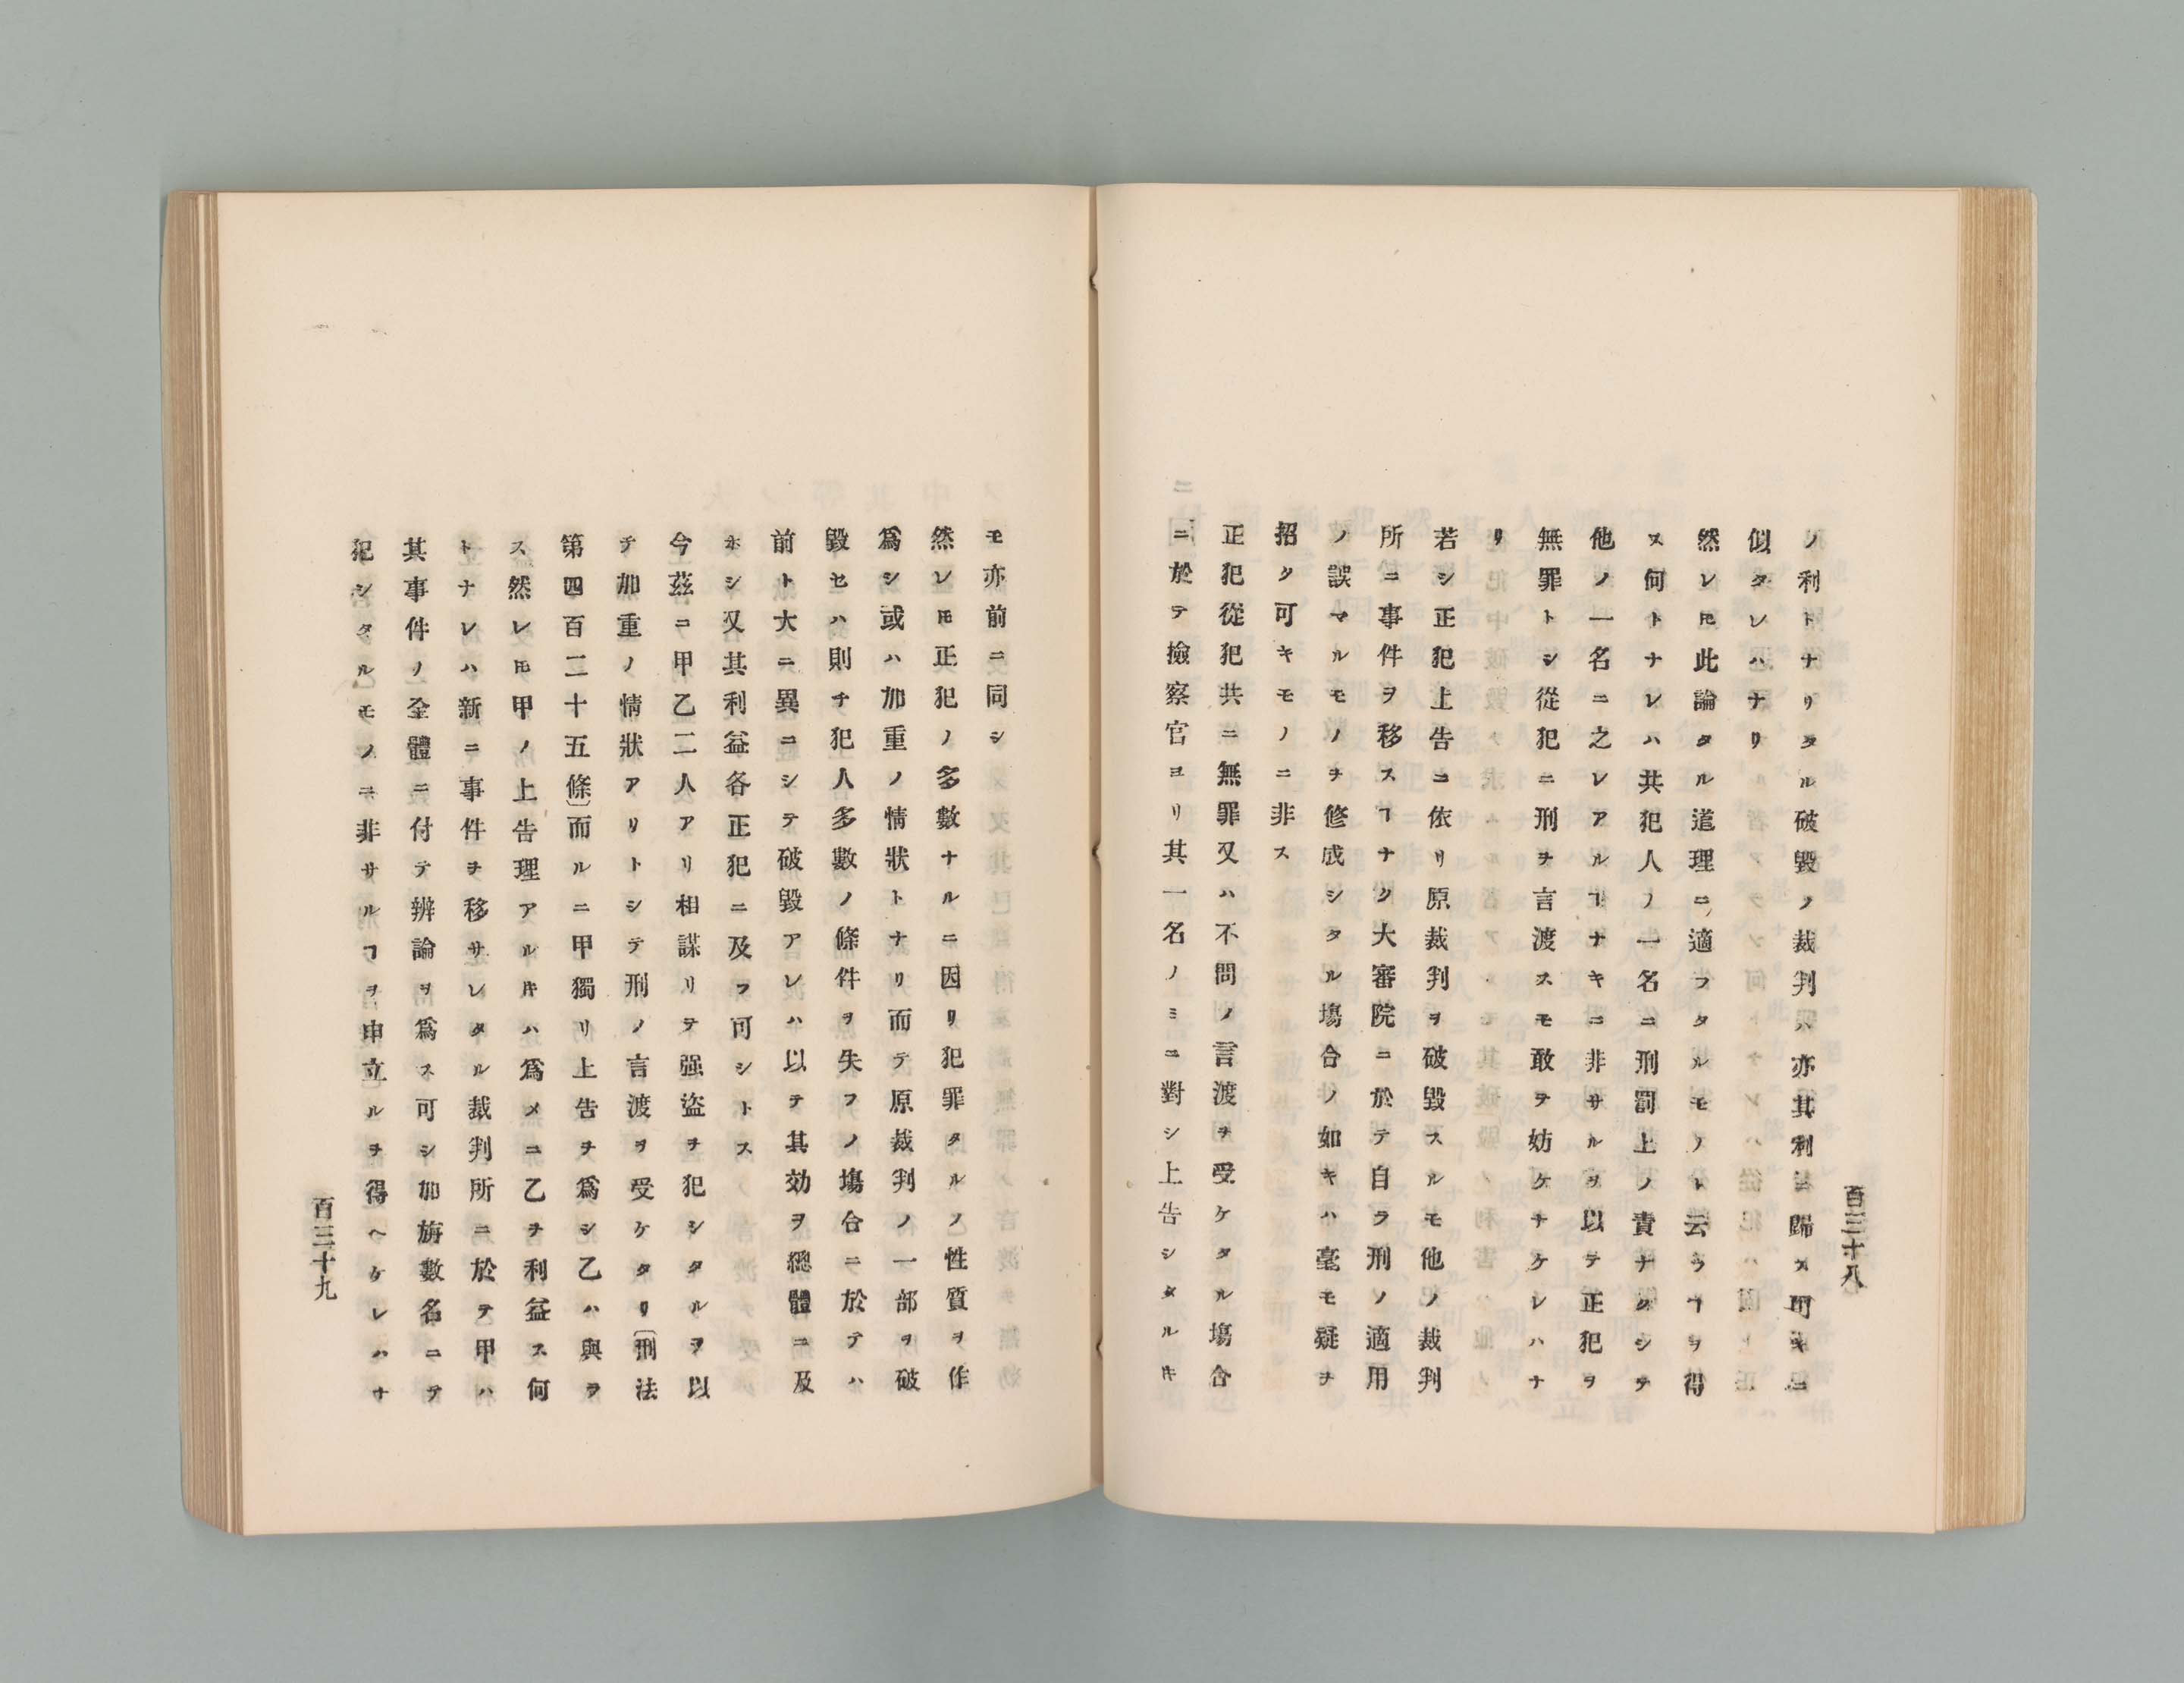 百三十八
ノ利トナリタル破毀ノ裁判ハ亦其利益ニ歸ス可キニ
似タレハナリ
然レ𪜈此論タル道理ニ適フタルモノト云フヿヲ得
ス何トナレハ共犯人ノ一名ニ刑罰上ノ責ナクシテ
他ノ一名ニ之レアルヿナキニ非サルヲ以テ正犯ヲ
無罪トシ從犯ニ刑ヲ言渡スモ敢テ妨ケナケレハナ
リ
若シ正犯上告ニ依リ原裁判ヲ破毀スルモ他ノ裁判
所ニ事件ヲ移スヿナク大審院ニ於テ自ラ刑ノ適用
ノ誤マルモノヲ修成シタル塲合ノ如キハ毫モ疑ヲ
招ク可キモノニ非ス
正犯從犯共ニ無罪又ハ不問ノ言渡ヲ受ケタル塲合
ニ於テ檢察官ヨリ其一名ノミニ對シ上告シタルキ
モ亦前ニ同シ
然レ𪜈正犯ノ多數ナルニ因リ犯罪タルノ性質ヲ作
爲シ或ハ加重ノ情狀トナリ而テ原裁判ノ一部ヲ破
毀セハ則チ犯人多數ノ條件ヲ失フノ塲合ニ於テハ
前ト大ニ異ニシテ破毀アレハ以テ其効ヲ總體ニ及
ホシ又其利益各正犯ニ及フ可シトス
今茲ニ甲乙二人アリ相謀リテ强盜ヲ犯シタルヲ以
テ加重ノ情狀アリトシテ刑ノ言渡ヲ受ケタリ〔刑法
第四百二十五條〕而ルニ甲獨リ上告ヲ爲シ乙ハ與ラ
ス然レ𪜈甲ノ上告理アルキハ爲メニ乙ヲ利益ス何
トナレハ新ニ事件ヲ移サレタル裁判所ニ於テ甲ハ
其事件ノ全體ニ付テ辨論ヲ爲ス可シ加旃數名ニテ
犯シタルモノニ非サルヿヲ申立ルヲ得ヘケレハナ
百三十九